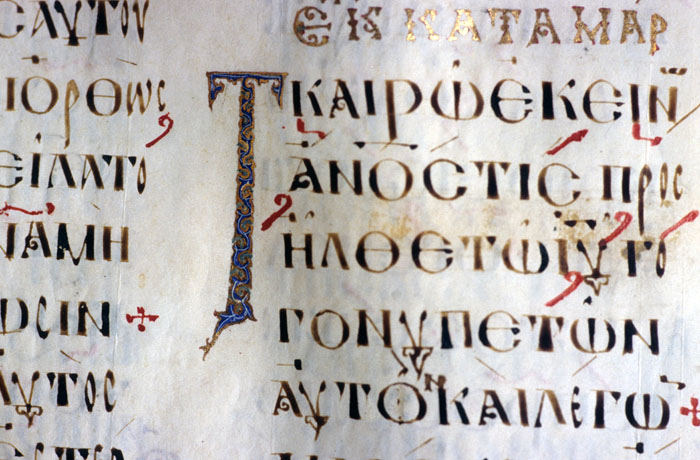 CΑΥΤΟΥ
ΙΟΡΘΩC
ΕΙΛΑΤΟ
ΝΑΜΗ
ΩCΙΝ
ΑΥΤΟC
ΕΚ ΚΑΤΑ ΜΑΡ
Τ ΚΑΙΡΩ ΕΚΕΙΝ
ΑΝΟC ΤΙC ΠΡΟC
ΗΛΘΕ ΤΩ ΙΥ ΓΟ
ΓΟΝΥΠΕΤΩΝ
ΑΥΤΟΝ ΚΑΙ ΛΕΓΩ